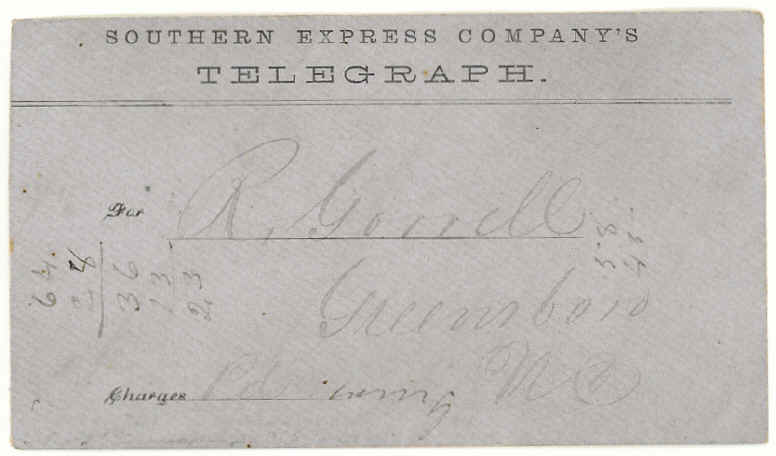 SOUTHERN EXPRESS COMPANY'S
TELEGRAPH.
For R. Gorrell
Greensboro
Charges Pd N C